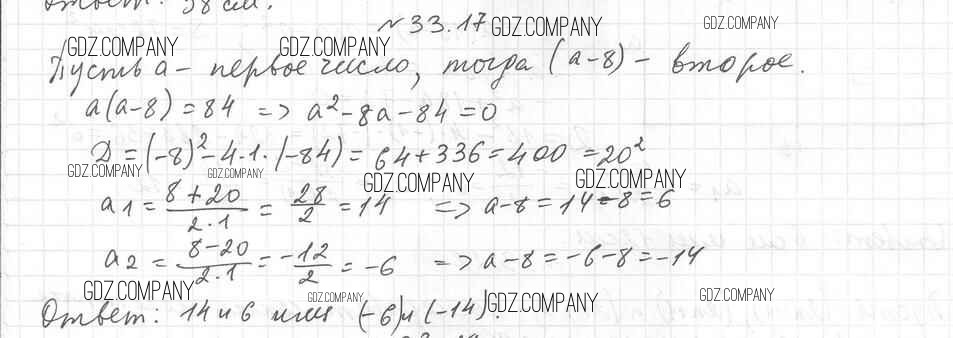 Ответ: 38 см.
№ 33.17 GDZ.COMPANY GDZ.COMPANY
GDZ.COMPANY GDZ.COMPANY
Пусть a – первое число, тогда (a-8) – второе.
a(a-8) = 84 => a²-8a-84=0
Д = (-8)²-4·1·(-84) = 64+336=400 =20²
GDZ.COMPANY GDZ.COMPANY GDZ.COMPANY GDZ.COMPANY
a1 = 8+20/2·1 = 28/2 = 14 => a-8 = 14-8=6
a2 = 8-20/2·1 = -12/2 = -6 => a-8 = -6-8=-14
GDZ.COMPANY GDZ.COMPANY GDZ.COMPANY GDZ.COMPANY
Ответ: 14 и 6 или (-6) и (-14).